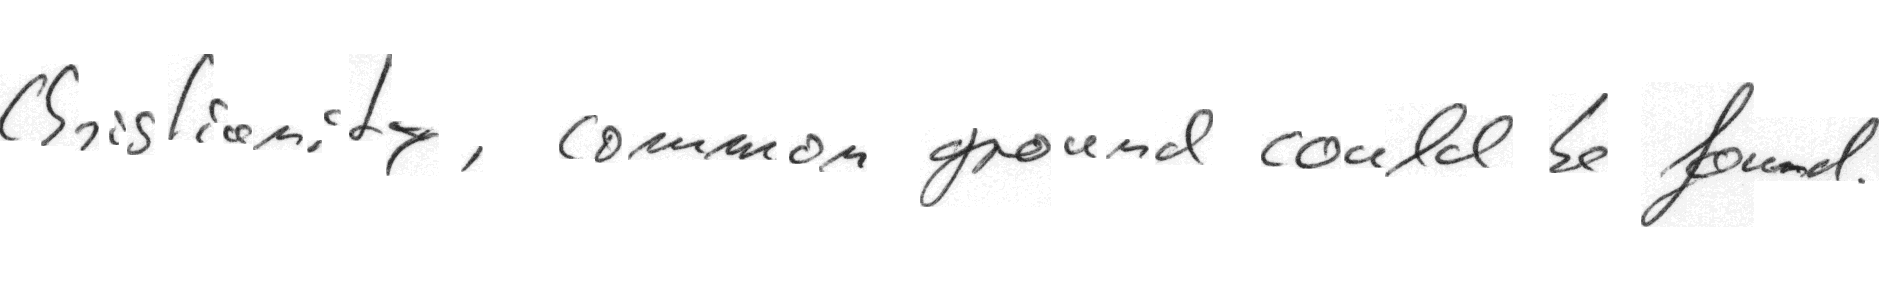 Christianity, common ground could be found.